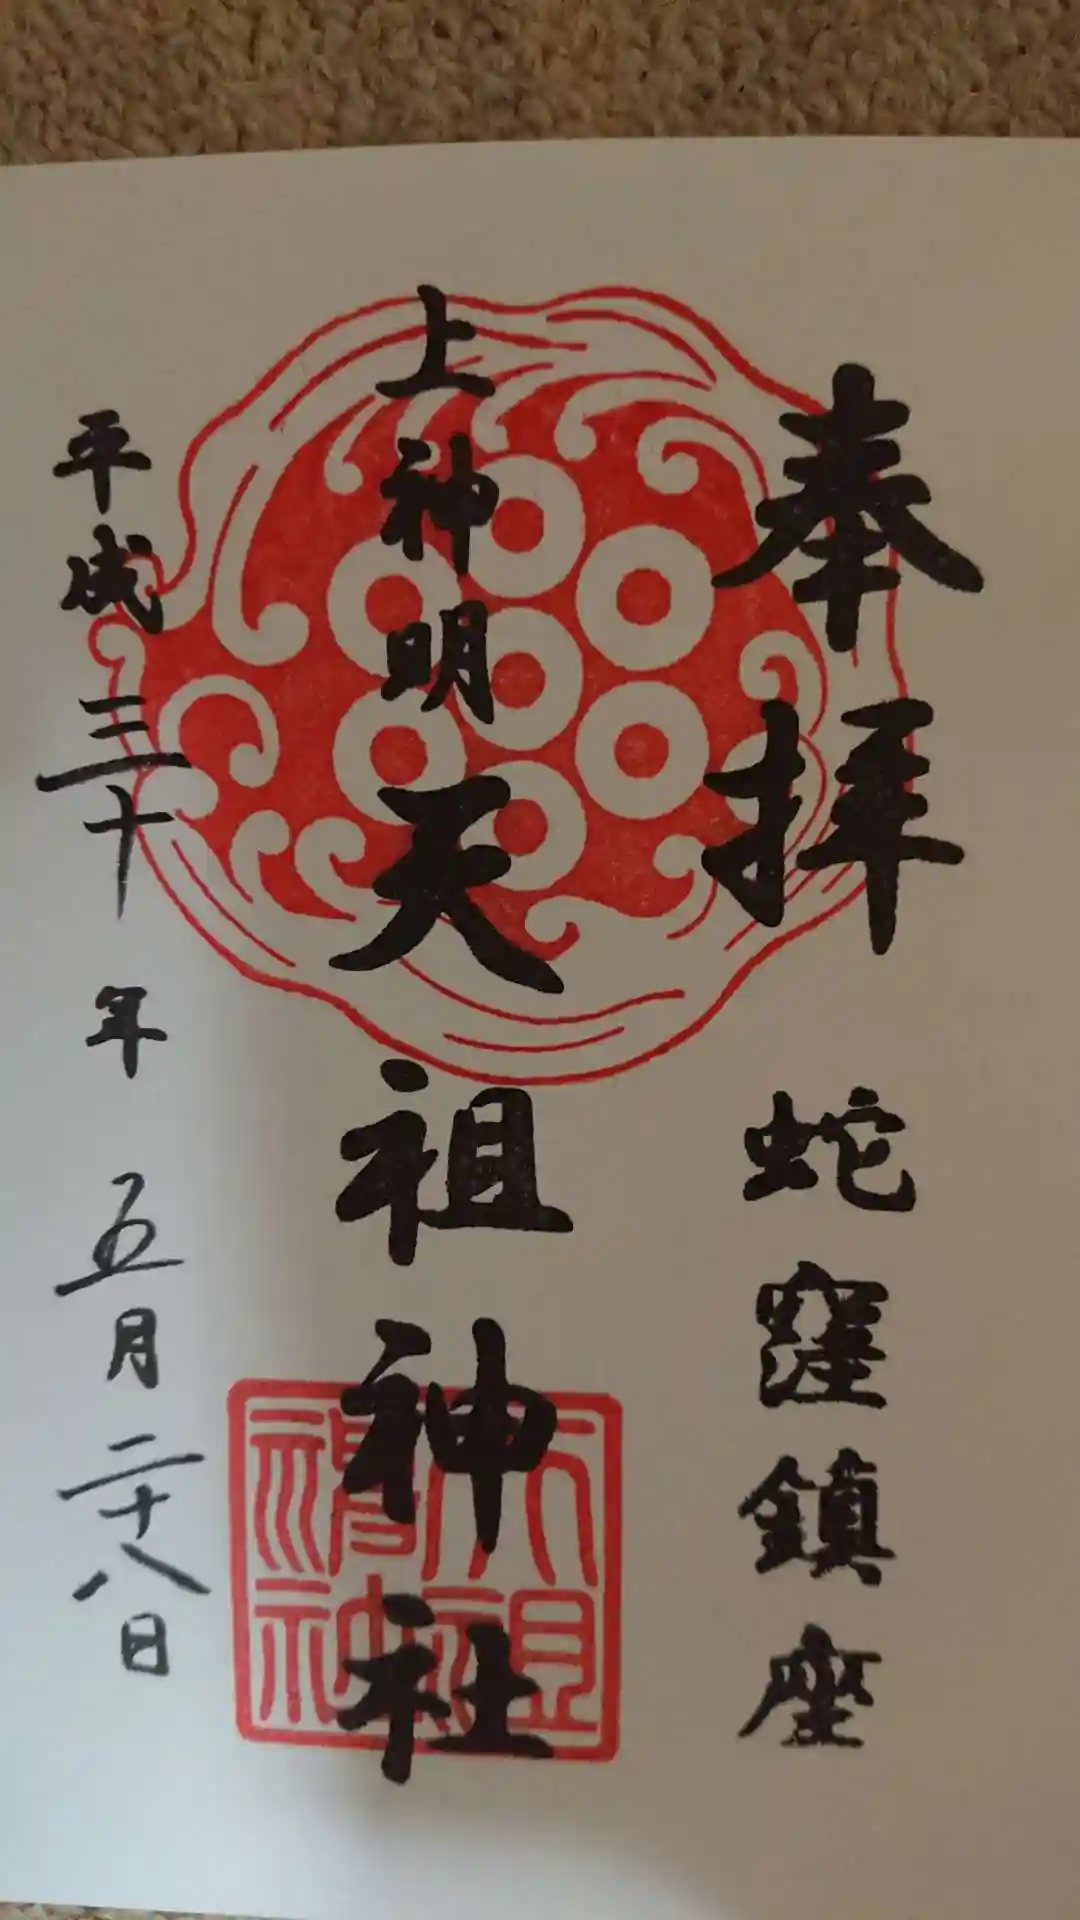 奉拝 蛇窪鎮座
上神明天祖神社
平成三十年 五月二十八日